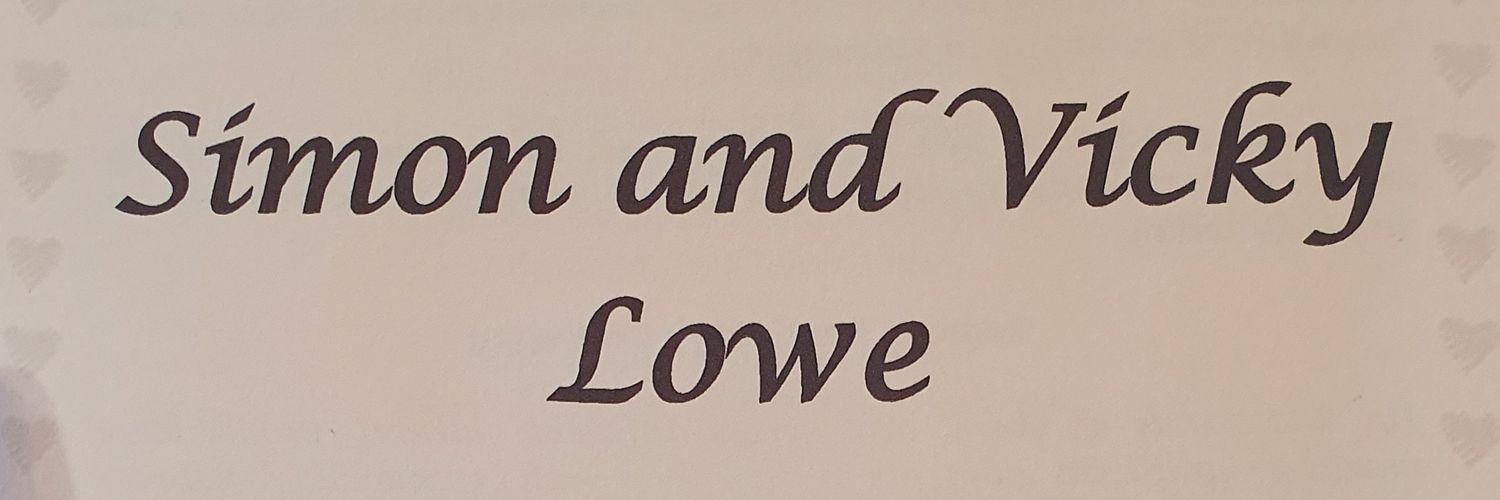 Simon and Vicky
Lowe